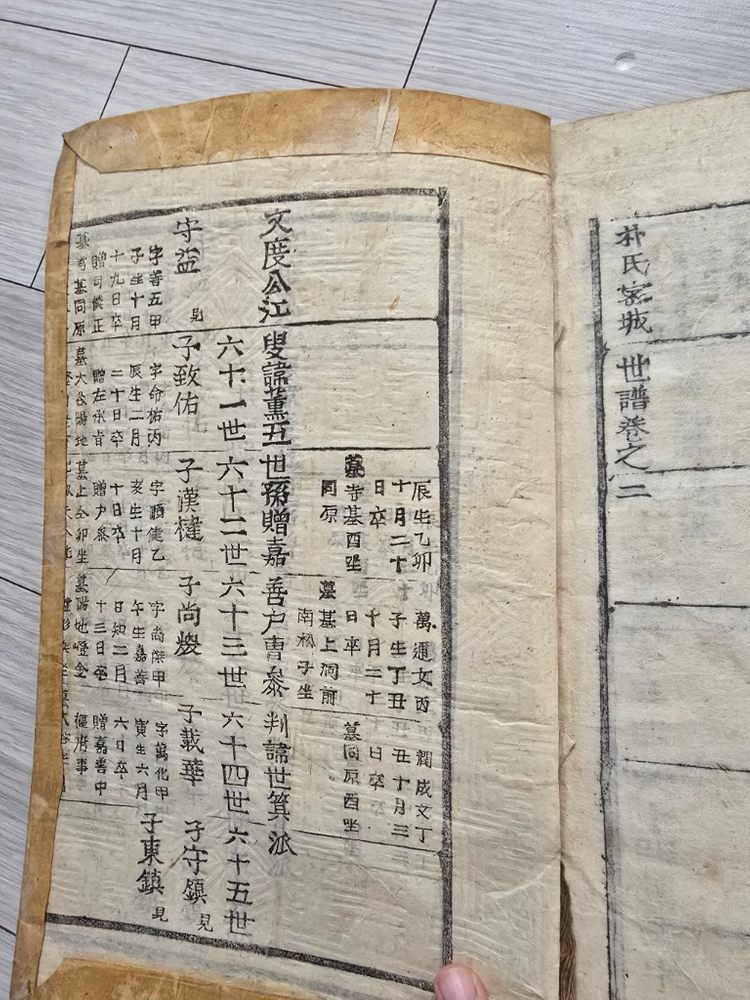 朴氏密城世譜卷之二
辰生乙卯
十月二十
日卒
墓寺基酉坐
同原
萬運女丙
子生丁丑
十月二十
日卒
墓基上洞前
南松子坐
潤成文丁
丑十月三
日卒
墓同原酉坐
文度公江叟諱薰五世孫贈嘉善戶曹參判諱世箕派
六十一世
六十二世
六十三世
六十四世
六十五世
守益 見
子致佑
子漢楗
子尚
子載華
子守鎭 見
字善五甲
子生十月
十九日卒
贈司僕正
墓寺基同原
字命佑丙
辰生二月
二十日卒
贈左承旨
墓大谷陽地
字順健乙
亥生十月
十日卒
贈戶參
卯坐
字尚傑甲
午生嘉善
二月
十三日卒
字萬化甲
寅生六月
六日卒
贈嘉善中
樞府事
子東鎭 見